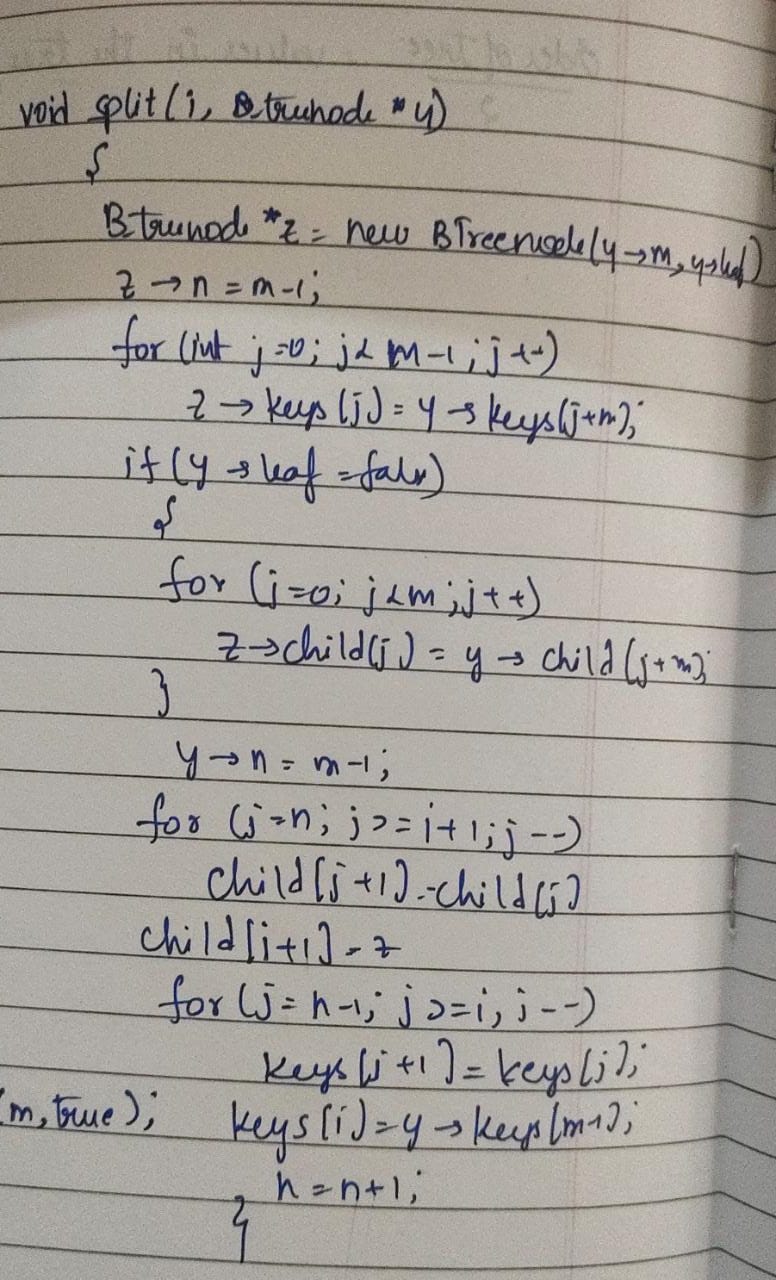 void split(i, Btreenode *y)
{
Btreenode *z = new BTreenode(y→m, y→leaf)
z→n = m-1;
for (int j=0; j< m-1; j++)
z→keys[j] = y→keys[j+m];
if(y→leaf = false)
{
for (j=0; j<m; j++)
z→child[j] = y→child[j+m];
}
y→n = m-1;
for (j=n; j>=i+1; j--)
child[j+1] = child[j]
child[i+1] = z
for (j=n-1; j>=i, j--)
keys[j+1] = keys[j];
m, true); keys[i] = y→keys[m-1];
n = n+1;
}